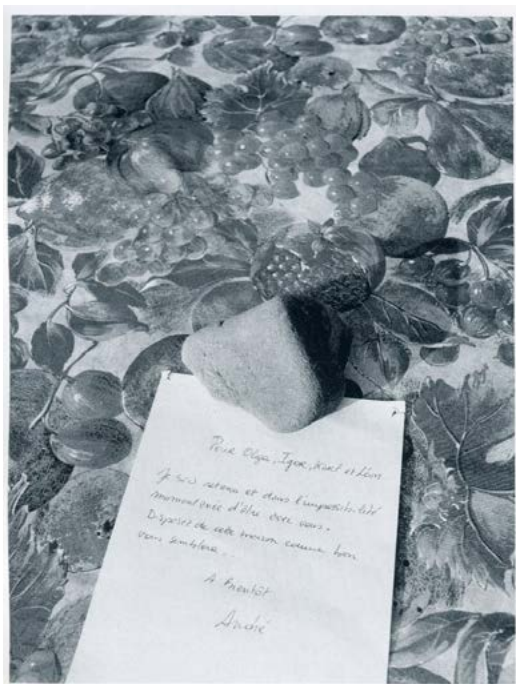 Pour Olga, Igor, et Léon
Je suis retenu et dans l'impossibilité
momentanée d'être avec vous.
Disposez de cette maison comme bon
vous semblera...
A Bientôt
André